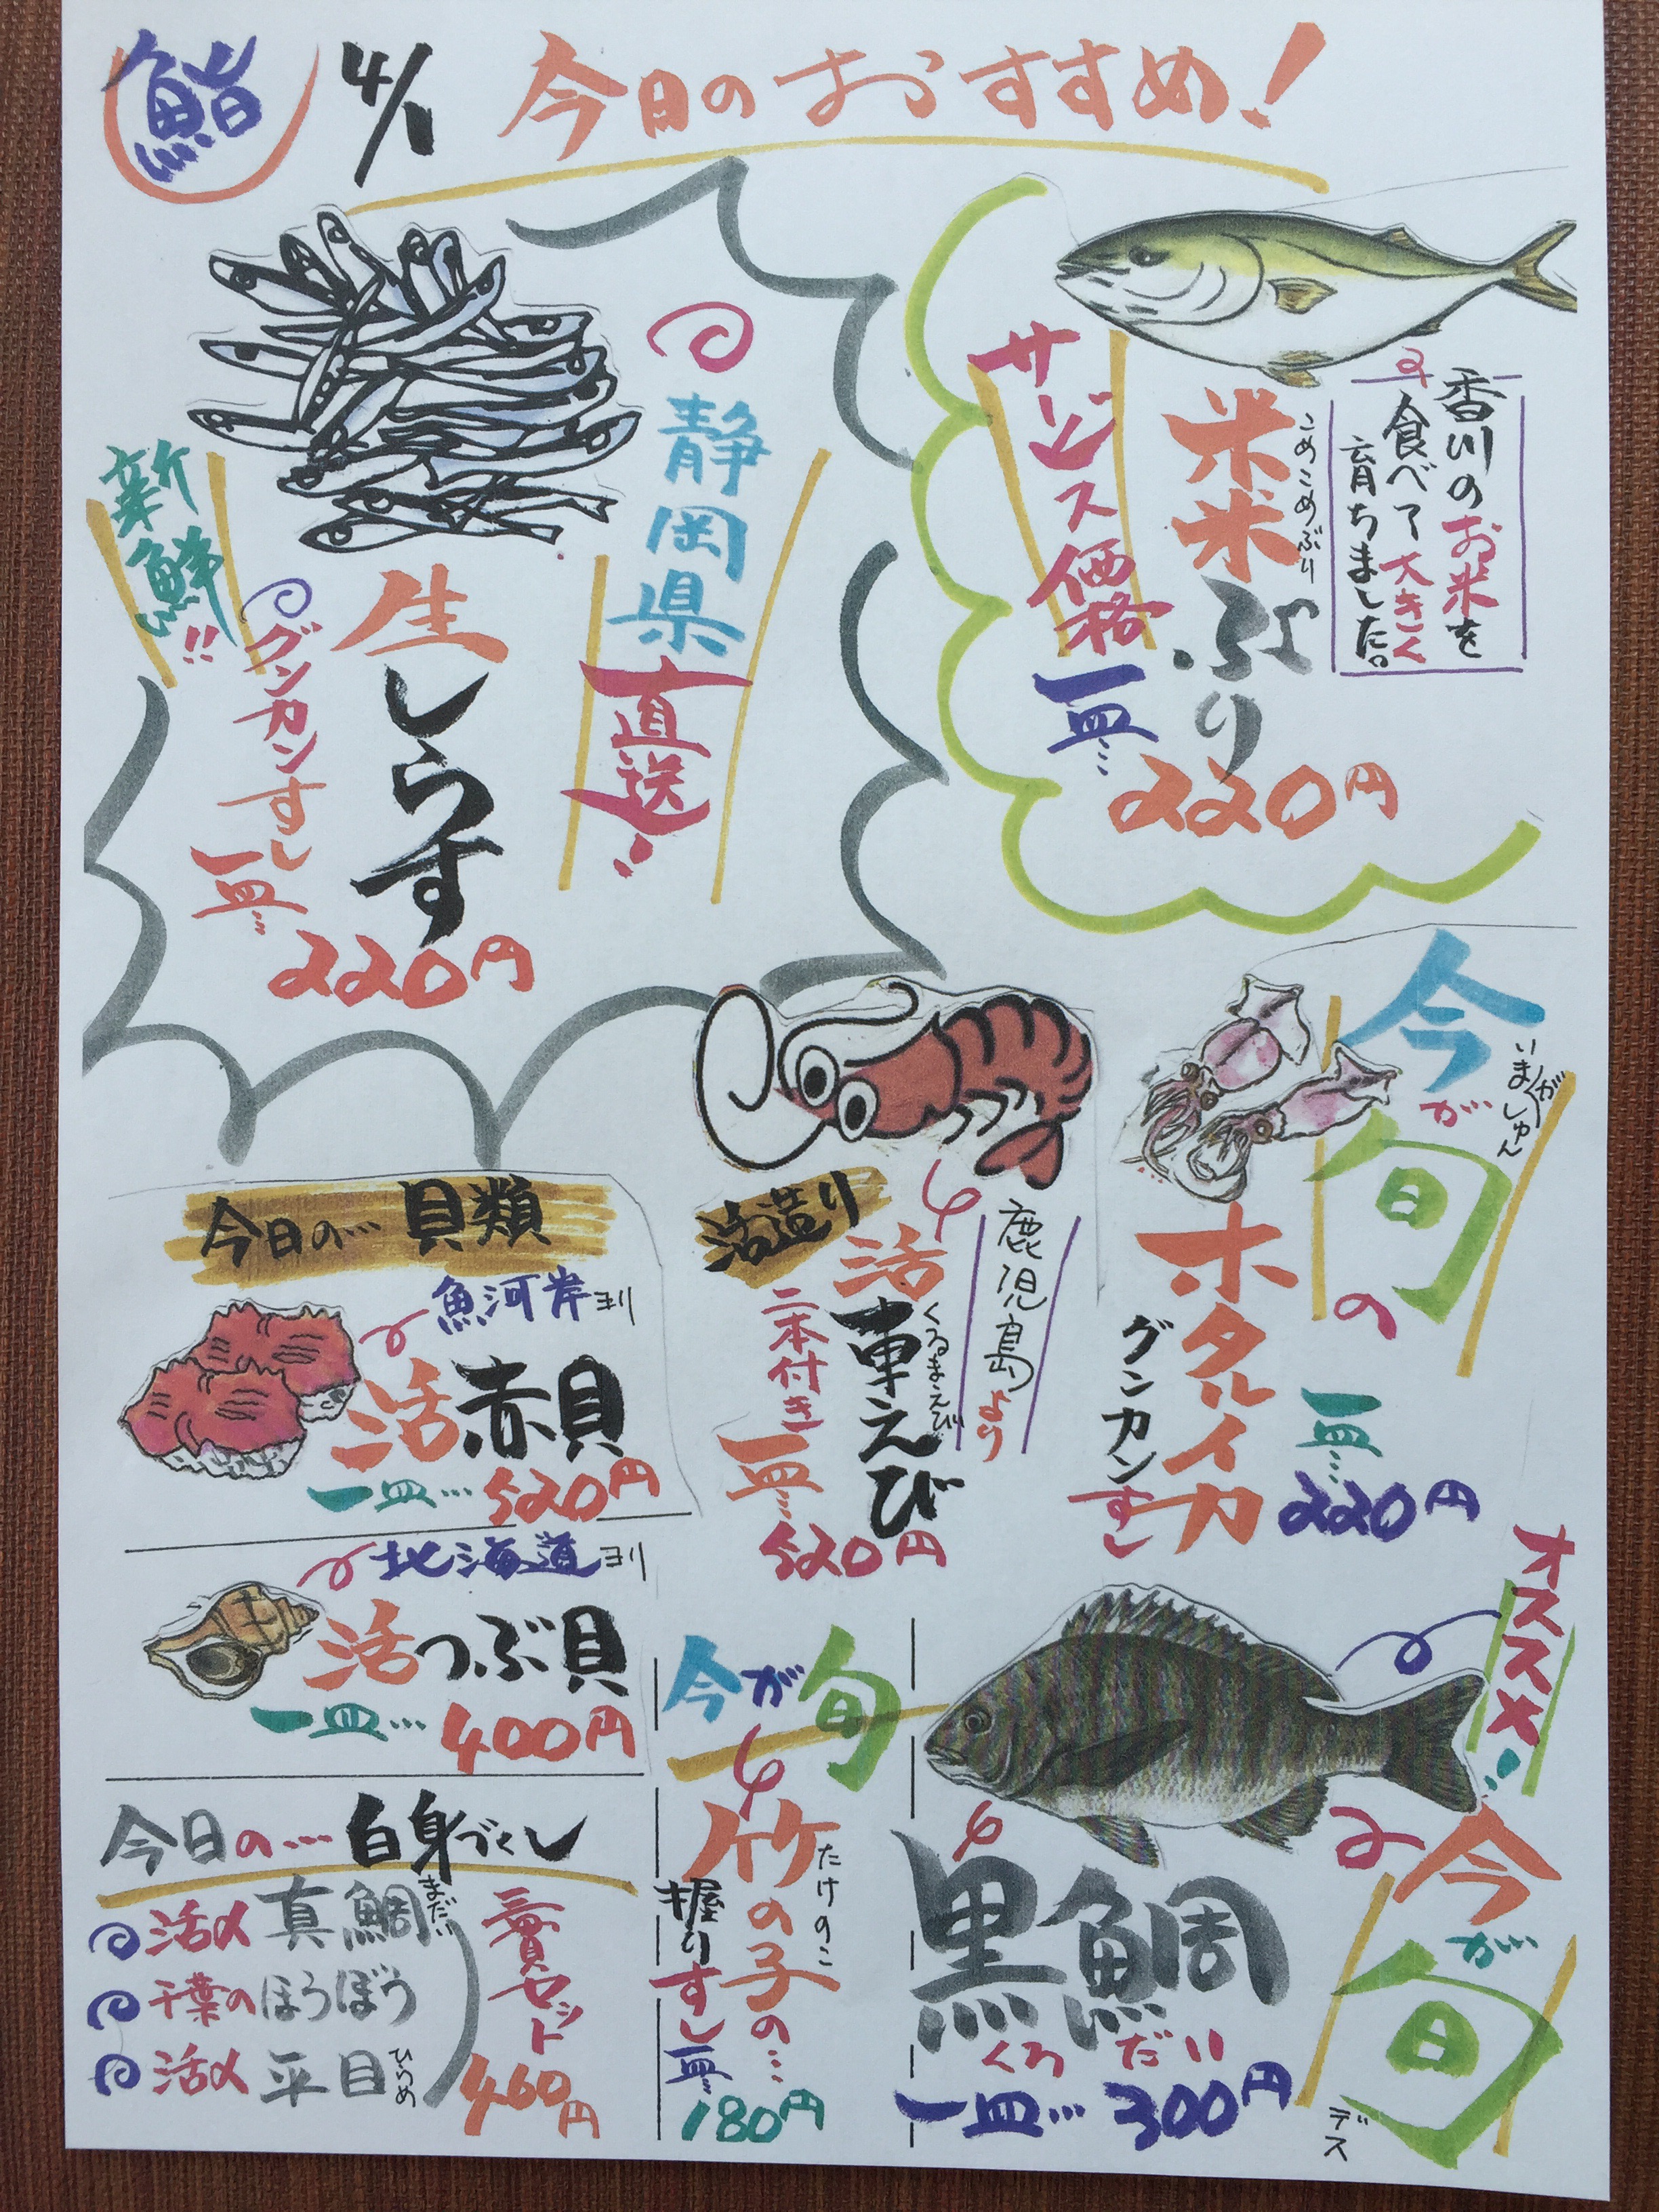 鮨
4/1 今日のおすすめ!
香川のお米を
食べて大きく
育ちました。
米米ぶり
こめこめぶり
サービス価格
一皿…
220円
静岡県
直送!
新鮮!!
生しらす
グンカンすし
一皿…
220円
今が旬の
いまがしゅん
ホタルイカ
グンカンすし
一皿…
220円
鹿児島より
活造り
活車えび
くるまえび
二本付き
一皿…
520円
今日の…貝類
魚河岸ヨリ
活赤貝
一皿…520円
北海道ヨリ
活つぶ貝
一皿…400円
今日の…白身づくし
活〆真鯛
まだい
千葉のほうぼう
活〆平目
ひらめ
三貫セット
460円
今が旬
竹の子の…
たけのこ
握りすし
一皿…
180円
オススメ!
今が旬
デス
黒鯛
くろだい
一皿…300円